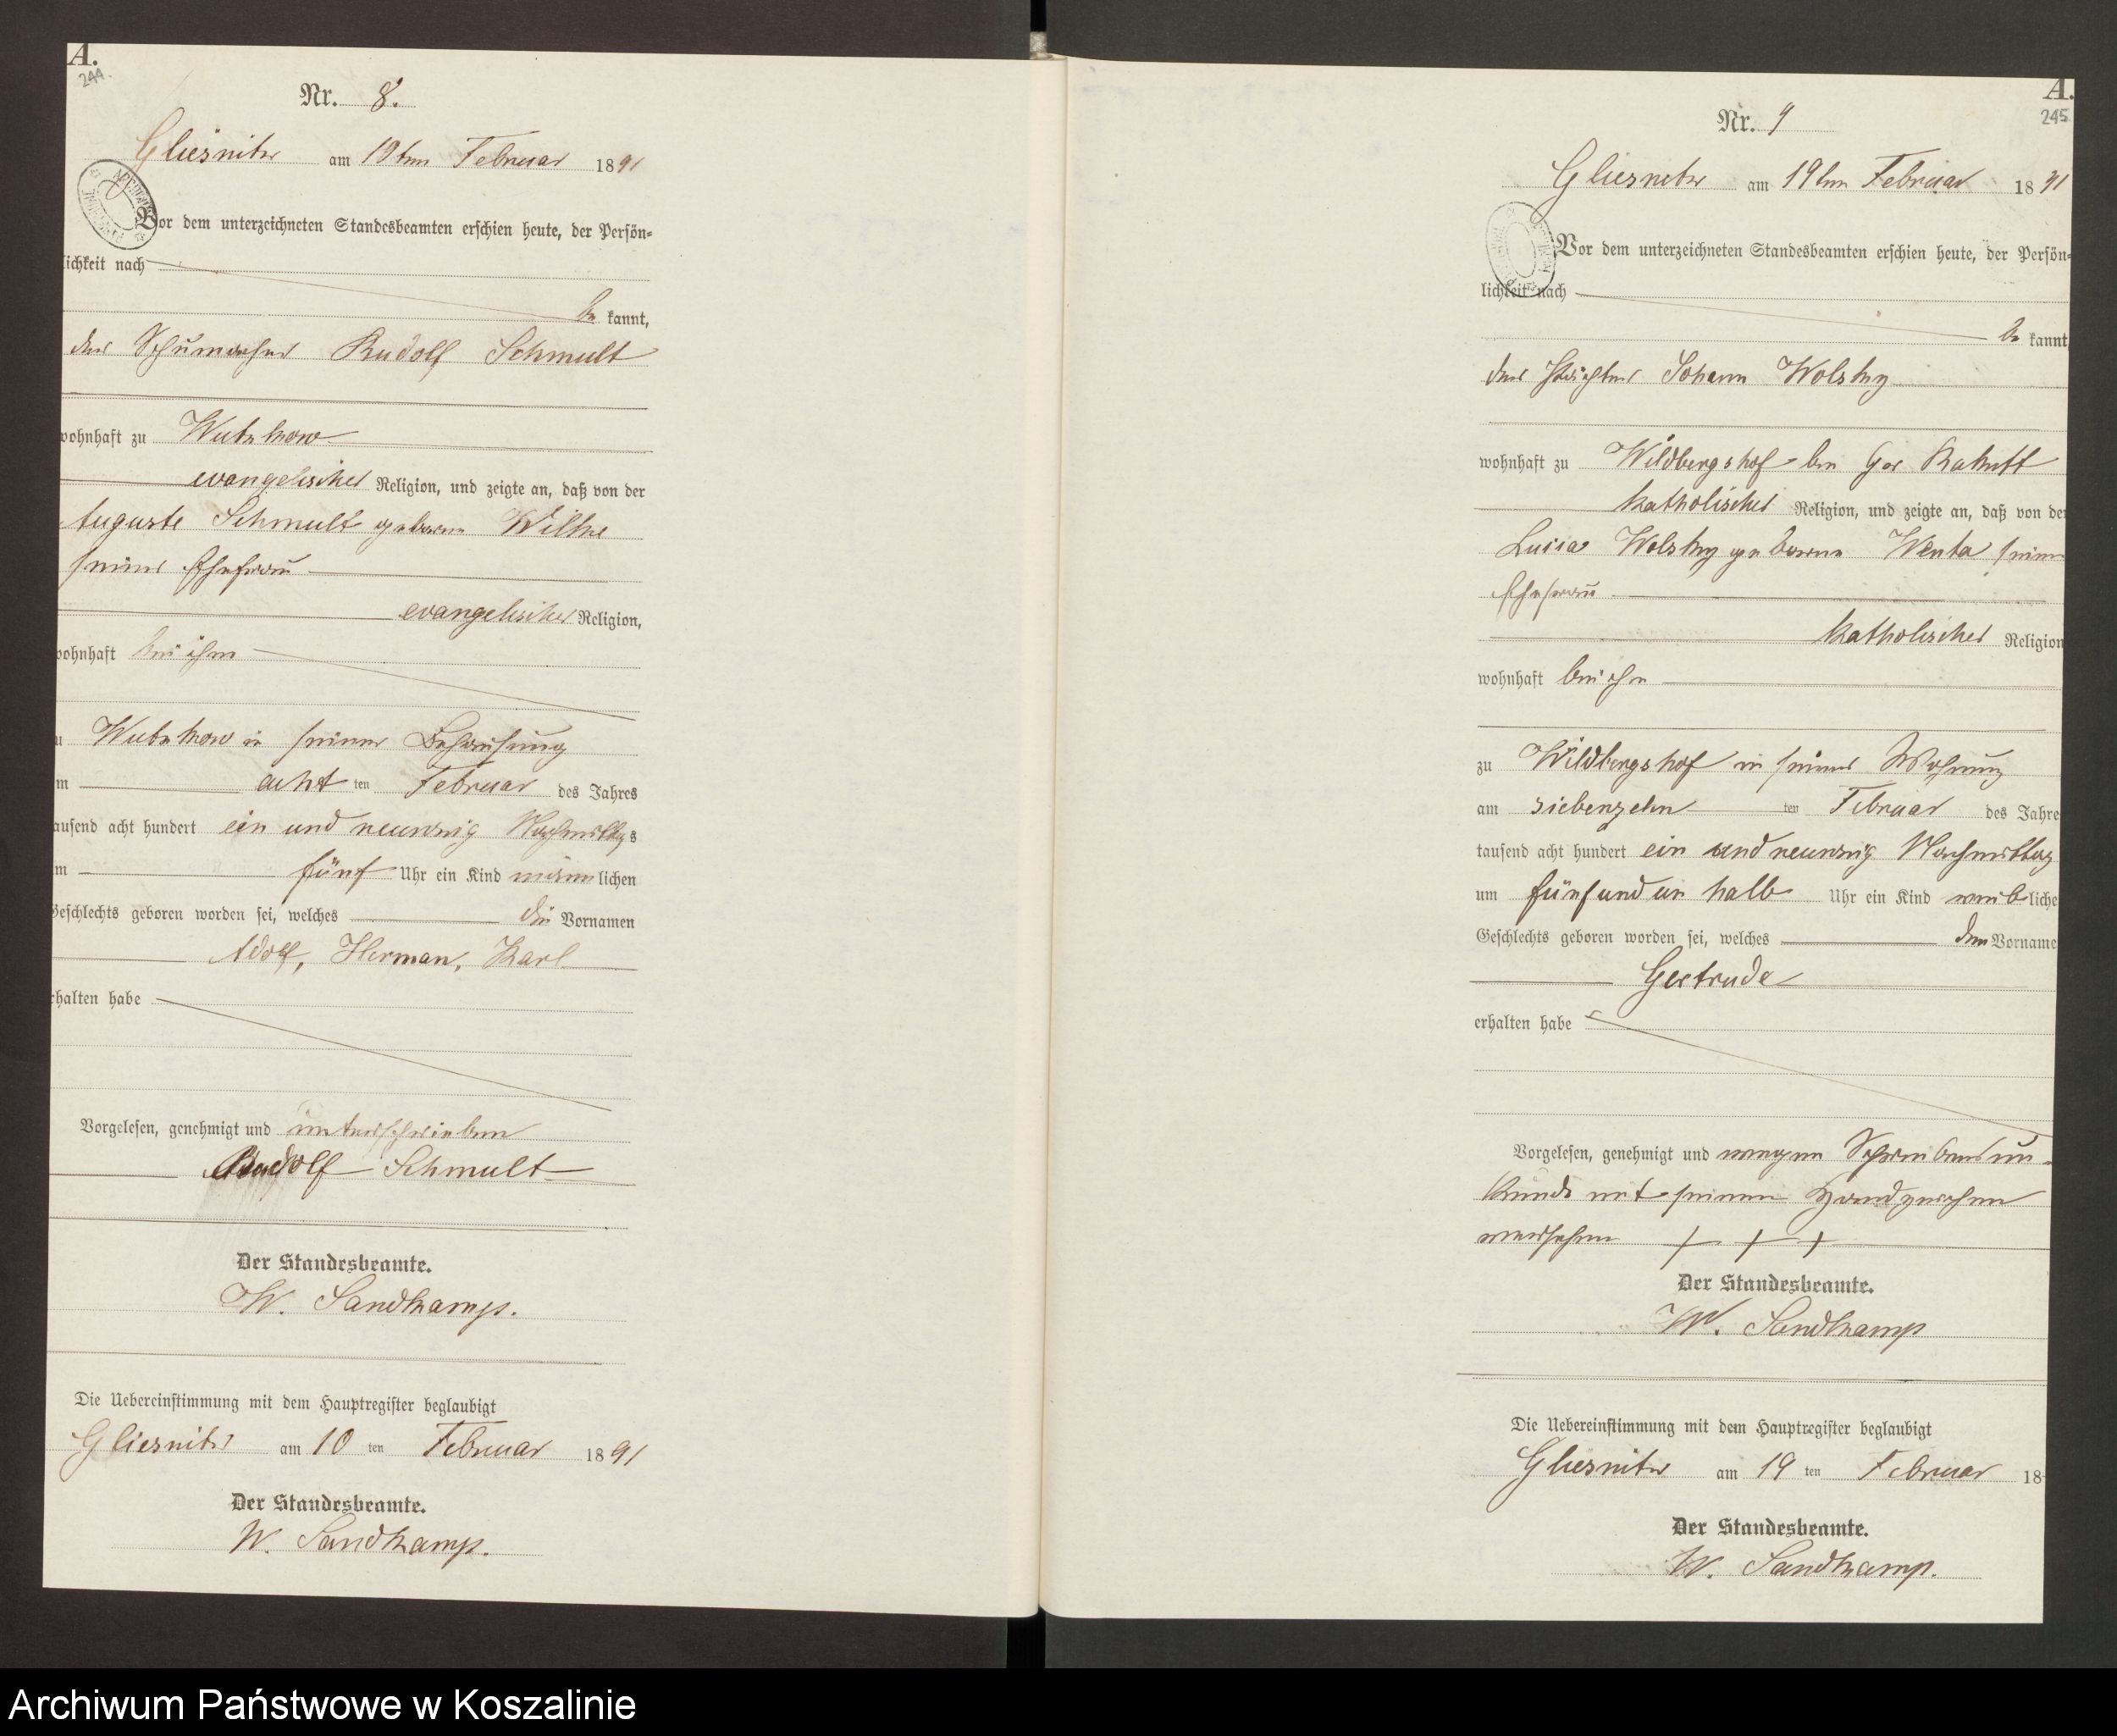 A.
244.
Nr. 8.
Gliesnitz am 10ten Februar 1891
Vor dem unterzeichneten Standesbeamten erschien heute, der Persön-
lichkeit nach
be kannt,
der Schumacher Rudolf Schmult
wohnhaft zu Wutzkow
evangelischer Religion, und zeigte an, daß von der
Auguste Schmult geborene Wilke
seiner Ehefrau
evangelischer Religion,
wohnhaft bei ihm
zu Wutzkow in seiner Behausung
am acht ten Februar des Jahres
tausend acht hundert ein und neunzig Nachmittags
um fünf Uhr ein Kind männlichen
Geschlechts geboren worden sei, welches die Vornamen
Adolf, Herman, Karl
erhalten habe
Vorgelesen, genehmigt und unterschrieben
Rudolf Schmult
Der Standesbeamte.
W. Sandkamp.
Die Uebereinstimmung mit dem Hauptregister beglaubigt
Gliesnitz am 10 ten Februar 1891
Der Standesbeamte.
W. Sandkamp.
A.
245
Nr. 9
Gliesnitz am 19ten Februar 1891
Vor dem unterzeichneten Standesbeamten erschien heute, der Persön-
lichkeit nach
be kannt
der Pächter Johann Wolsky
wohnhaft zu Wildbergshof bei Gr. Rakitt
katholischer Religion, und zeigte an, daß von der
Lucia Wolsky geborene Wenta seiner
Ehefrau
katholischer Religion
wohnhaft bei ihm
zu Wildbergshof in seiner Wohnung
am siebenzehn ten Februar des Jahre
tausend acht hundert ein und neunzig Nachmittag
um fünf und ein halb Uhr ein Kind weib liche
Geschlechts geboren worden sei, welches den Vorname
Gertrude
erhalten habe
Vorgelesen, genehmigt und wegen Schreibens un-
kunde mit seinem Handzeichen
versehen + + +
Der Standesbeamte.
W. Sandkamp
Die Uebereinstimmung mit dem Hauptregister beglaubigt
Gliesnitz am 19 ten Februar 18
Der Standesbeamte.
W. Sandkamp.
Archiwum Państwowe w Koszalinie